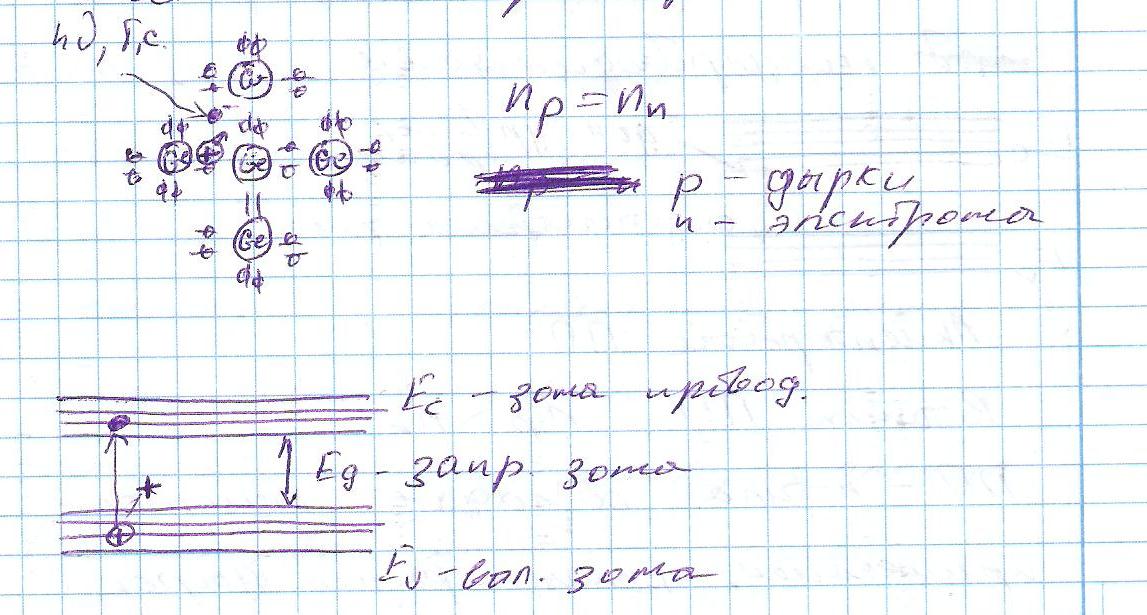 hν, T,c.
Ge
Ge Ge Ge
Ge
n_p = n_n
p – дырки
n – электрона
E_c – зона провод.
E_g – запр. зона
E_v – вал. зона